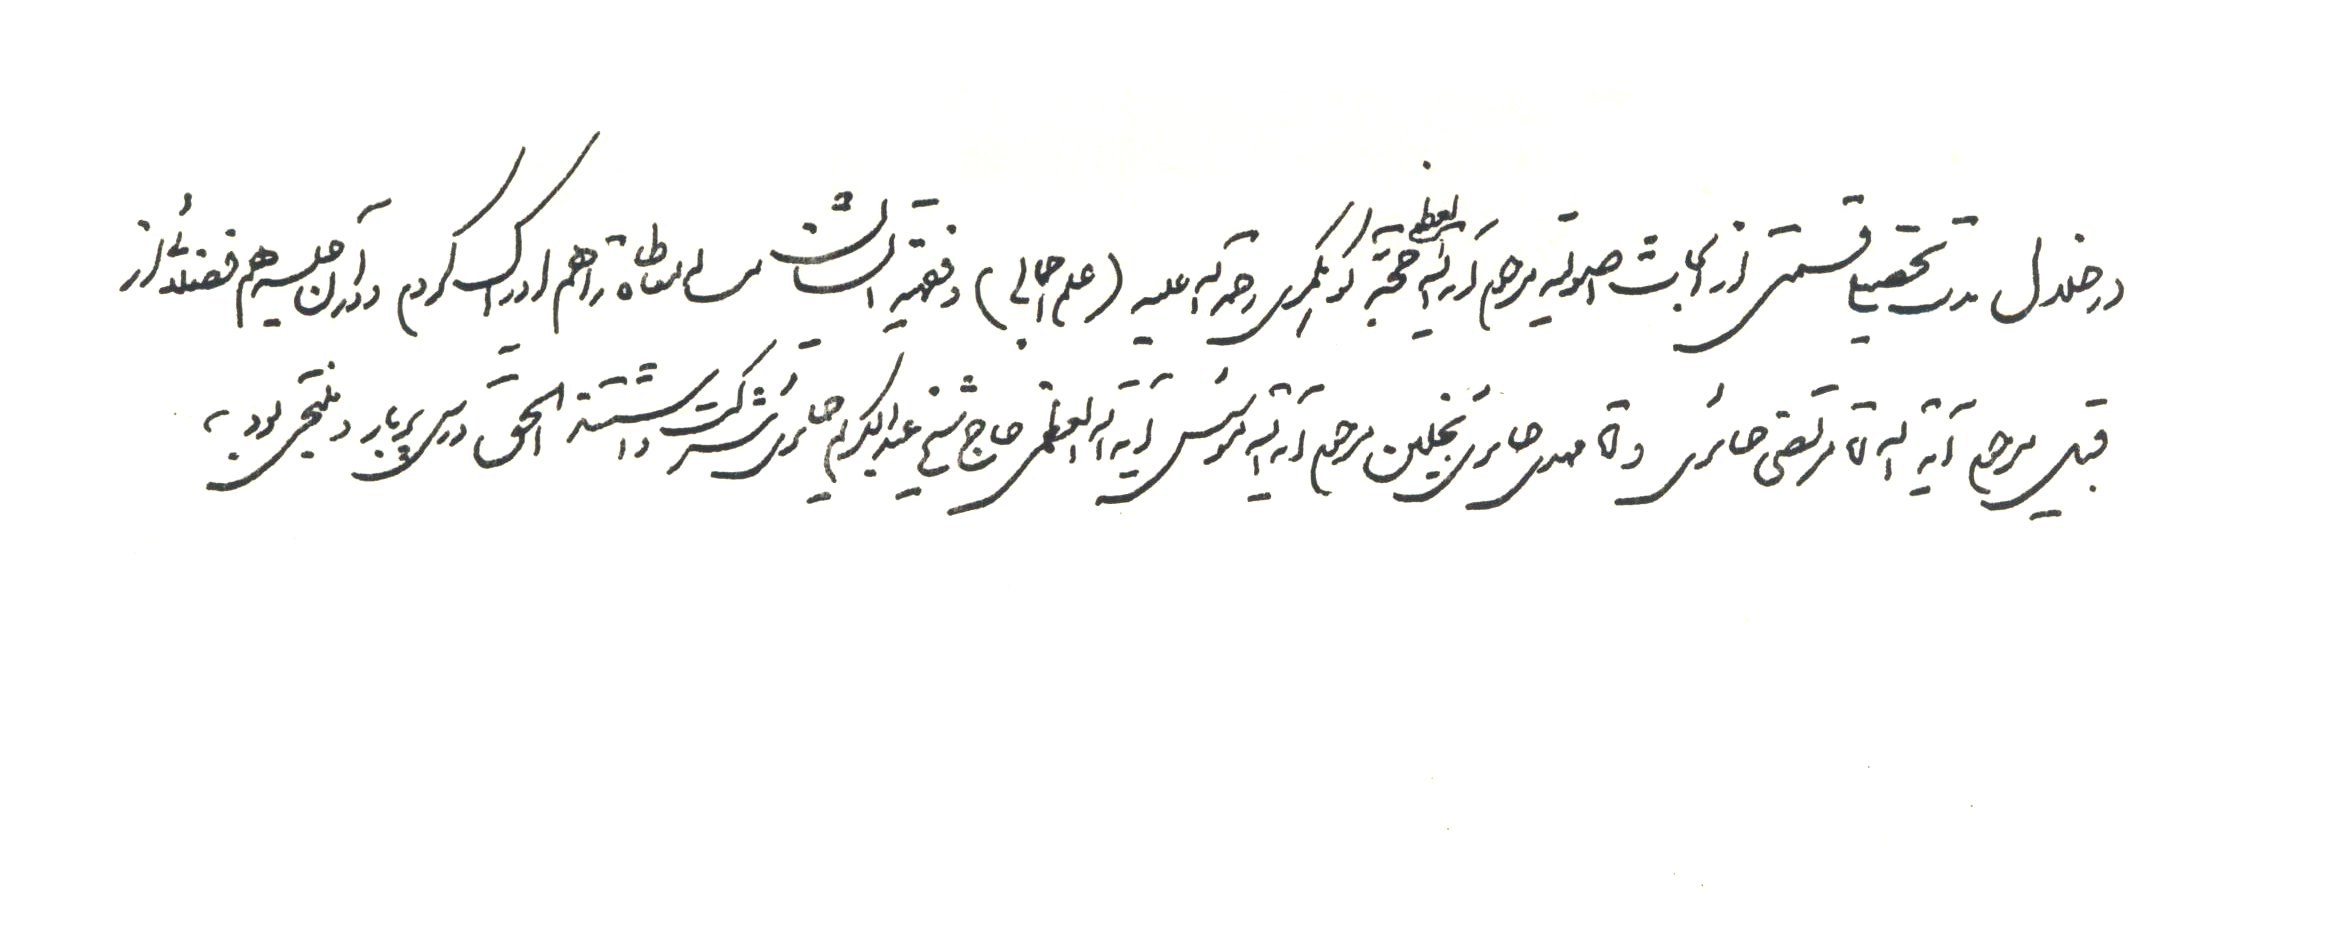 در خلال مدت تحصیل قسمتی از ابحاث اصولیه مرحوم آیة الله العظمی حجت کوهکمری رحمة الله علیه (علم اجمالی) و فقهیه ایشان معاطاة را هم ادراک کردم و در آن جلسه هم فضلائی از
قبیل مرحوم آیة الله آقا مرتضی حائری و آقا مهدی حائری نجلین مرحوم آیة الله مؤسس آیة الله العظمی حاج شیخ عبدالکریم حائری شرکت داشتند الحق درس پربار و منقحی بود